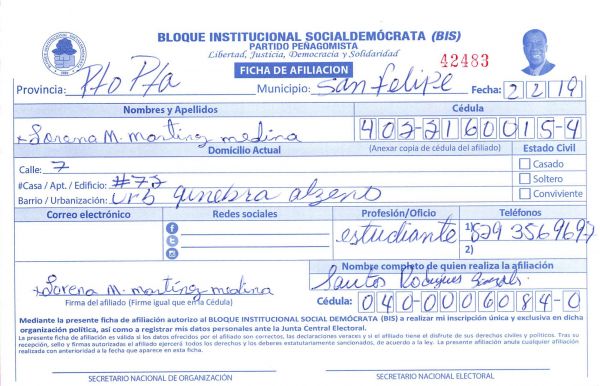 BLOQUE INSTITUCIONAL SOCIALDEMÓCRATA (BIS)
PARTIDO PEÑAGOMISTA
Libertad, Justicia, Democracia y Solidaridad
FICHA DE AFILIACION
42483
Provincia: Pto Pta Municipio: San Felipe Fecha: 2 2 19
Nombres y Apellidos Cédula
Lorena M. martínez medina 402-2160015-4
Domicilio Actual (Anexar copia de cédula del afiliado) Estado Civil
Calle: 7 Casado
#Casa / Apt. / Edificio: #77 Soltero
Barrio / Urbanización: Urb ginebra Conviviente
Correo electrónico Redes sociales Profesión/Oficio Teléfonos
estudiante 1) 829 3569697
2)
Nombre completo de quien realiza la afiliación
Lorena M. martínez medina Santos Rodriguez
Firma del afiliado (Firme igual que en la Cédula) Cédula: 040-0006084-0
Mediante la presente ficha de afiliación autorizo al BLOQUE INSTITUCIONAL SOCIAL DEMÓCRATA (BIS) a realizar mi inscripción única y exclusiva en dicha
organización política, así como a registrar mis datos personales ante la Junta Central Electoral.
La presente ficha de afiliación es válida si los datos ofrecidos por el afiliado son correctos, las declaraciones veraces y si el afiliado tiene el disfrute de sus derechos civiles y políticos. Tras su
recepción, sello y firmas autorizadas el afiliado ejercerá todos los derechos y los deberes estatutariamente sancionados, de acuerdo a la ley. La presente afiliación anula cualquier afiliación
realizada con anterioridad a la fecha que aparece en esta ficha.
SECRETARIO NACIONAL DE ORGANIZACIÓN SECRETARIO NACIONAL ELECTORAL